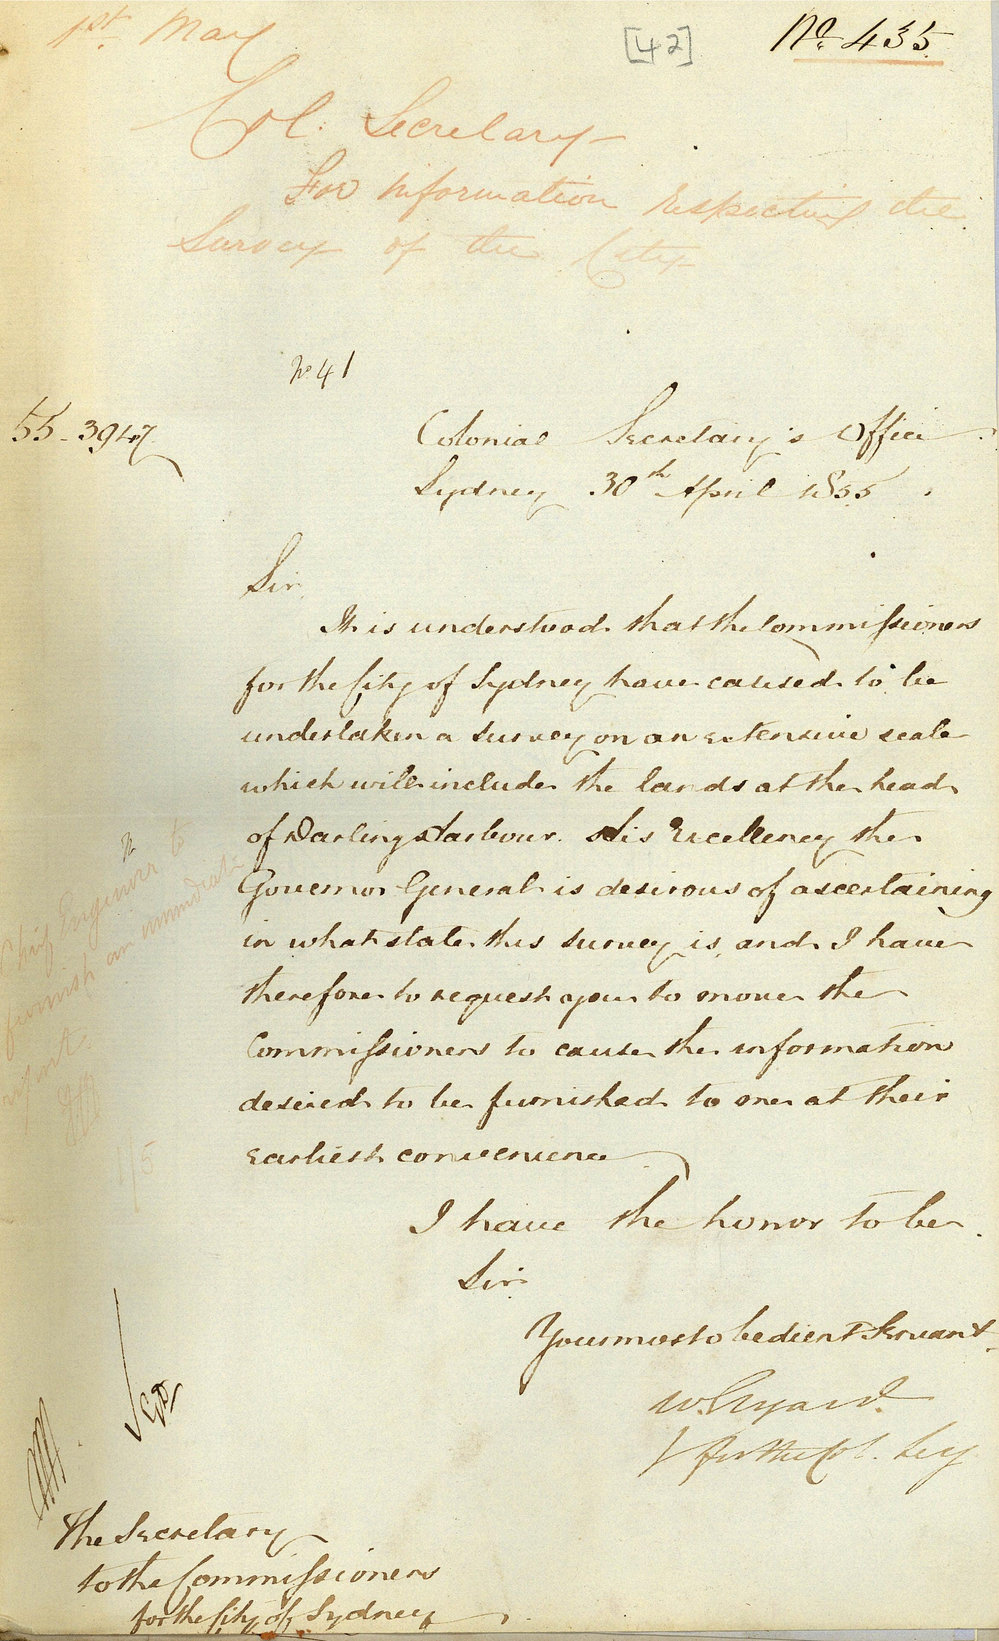 1st. May
[42]
No. 435
Col. Secretary
For information respecting the
Survey of the City
No 41
55-3947
Colonial Secretary's Office
Sydney 30th April 1855.
Sir,
It is understood that the Commissioners
for the City of Sydney have caused to be
undertaken a survey on an extensive scale
which will include the lands at the head
of Darling Harbour. His Excellency the
Governor General is desirous of ascertaining
in what state this survey is, and I have
therefore to request you to move the
Commissioners to cause the information
desired to be furnished to me at their
earliest convenience
I have the honor to be.
Sir.
Your most obedient Servant.
W. Elyard.
for the Col. Secy
The
Chief Engineer to
furnish an immediate
report
1/5
The Secretary
to the Commissioners
for the City of Sydney.